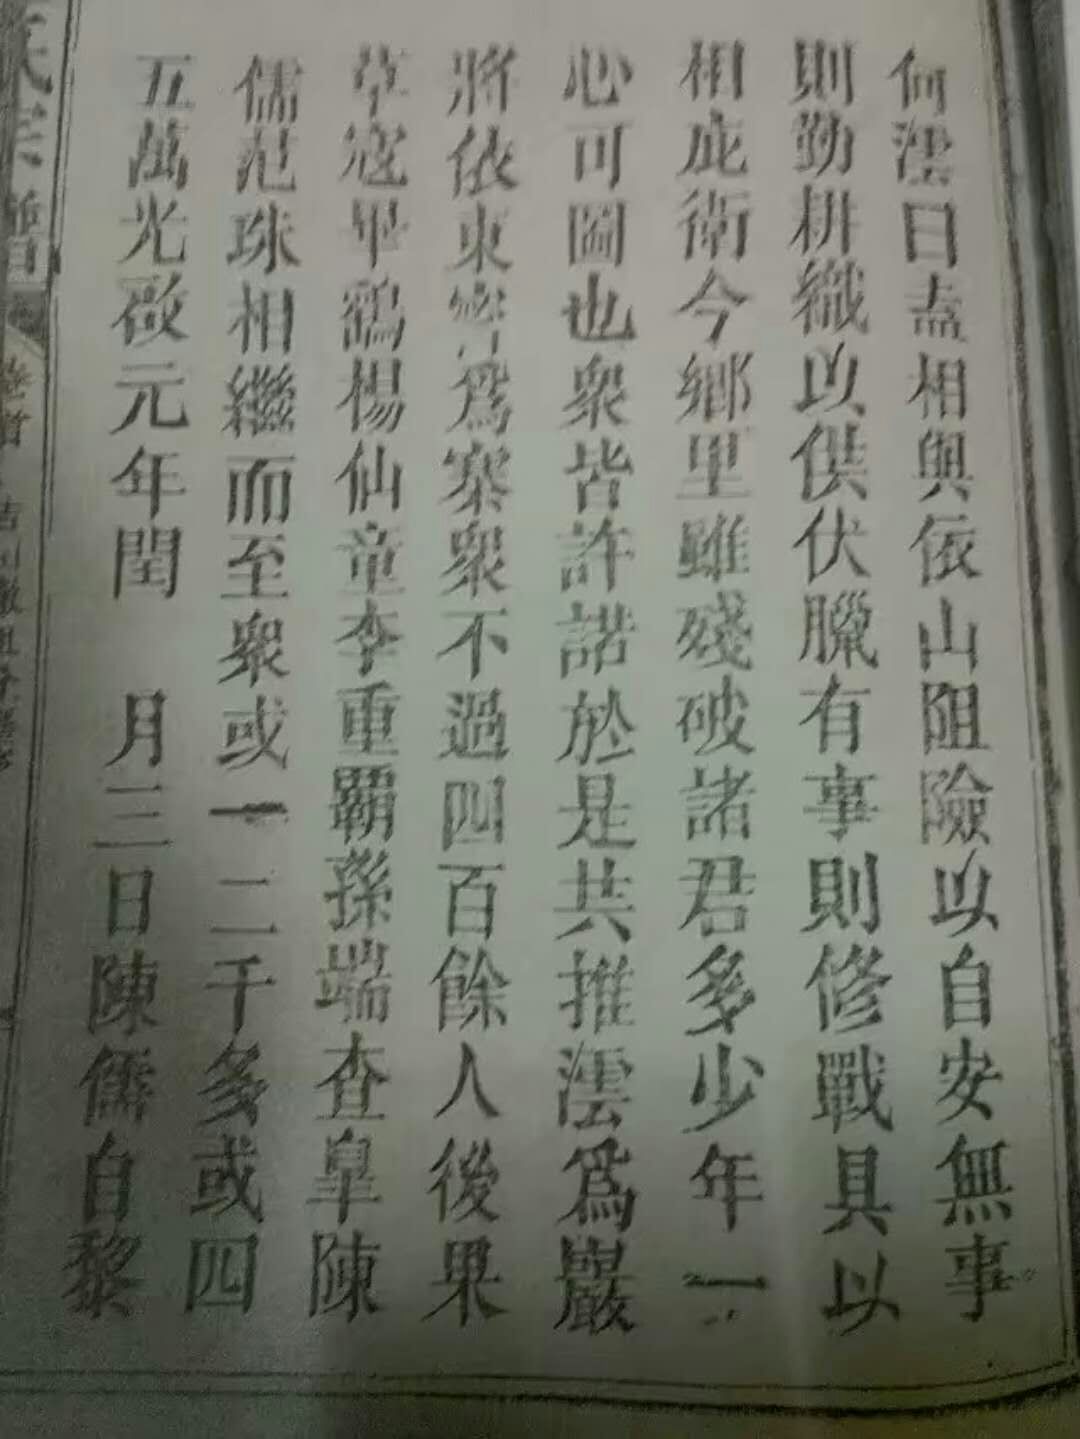 何澐曰盍相與依山阻險以自安無事
則勤耕織以供伏臘有事則修戰具以
相庇衛今鄉里雖殘破諸君多少年一
心可圖也衆皆許諾於是共推澐爲巖
將依東 爲寨衆不過四百餘人後果
草寇畢鶴楊仙童李重覇孫端查皐陳
儒范珠相繼而至衆或一二千多或四
五萬光啟元年閏 月三日陳儒自黎